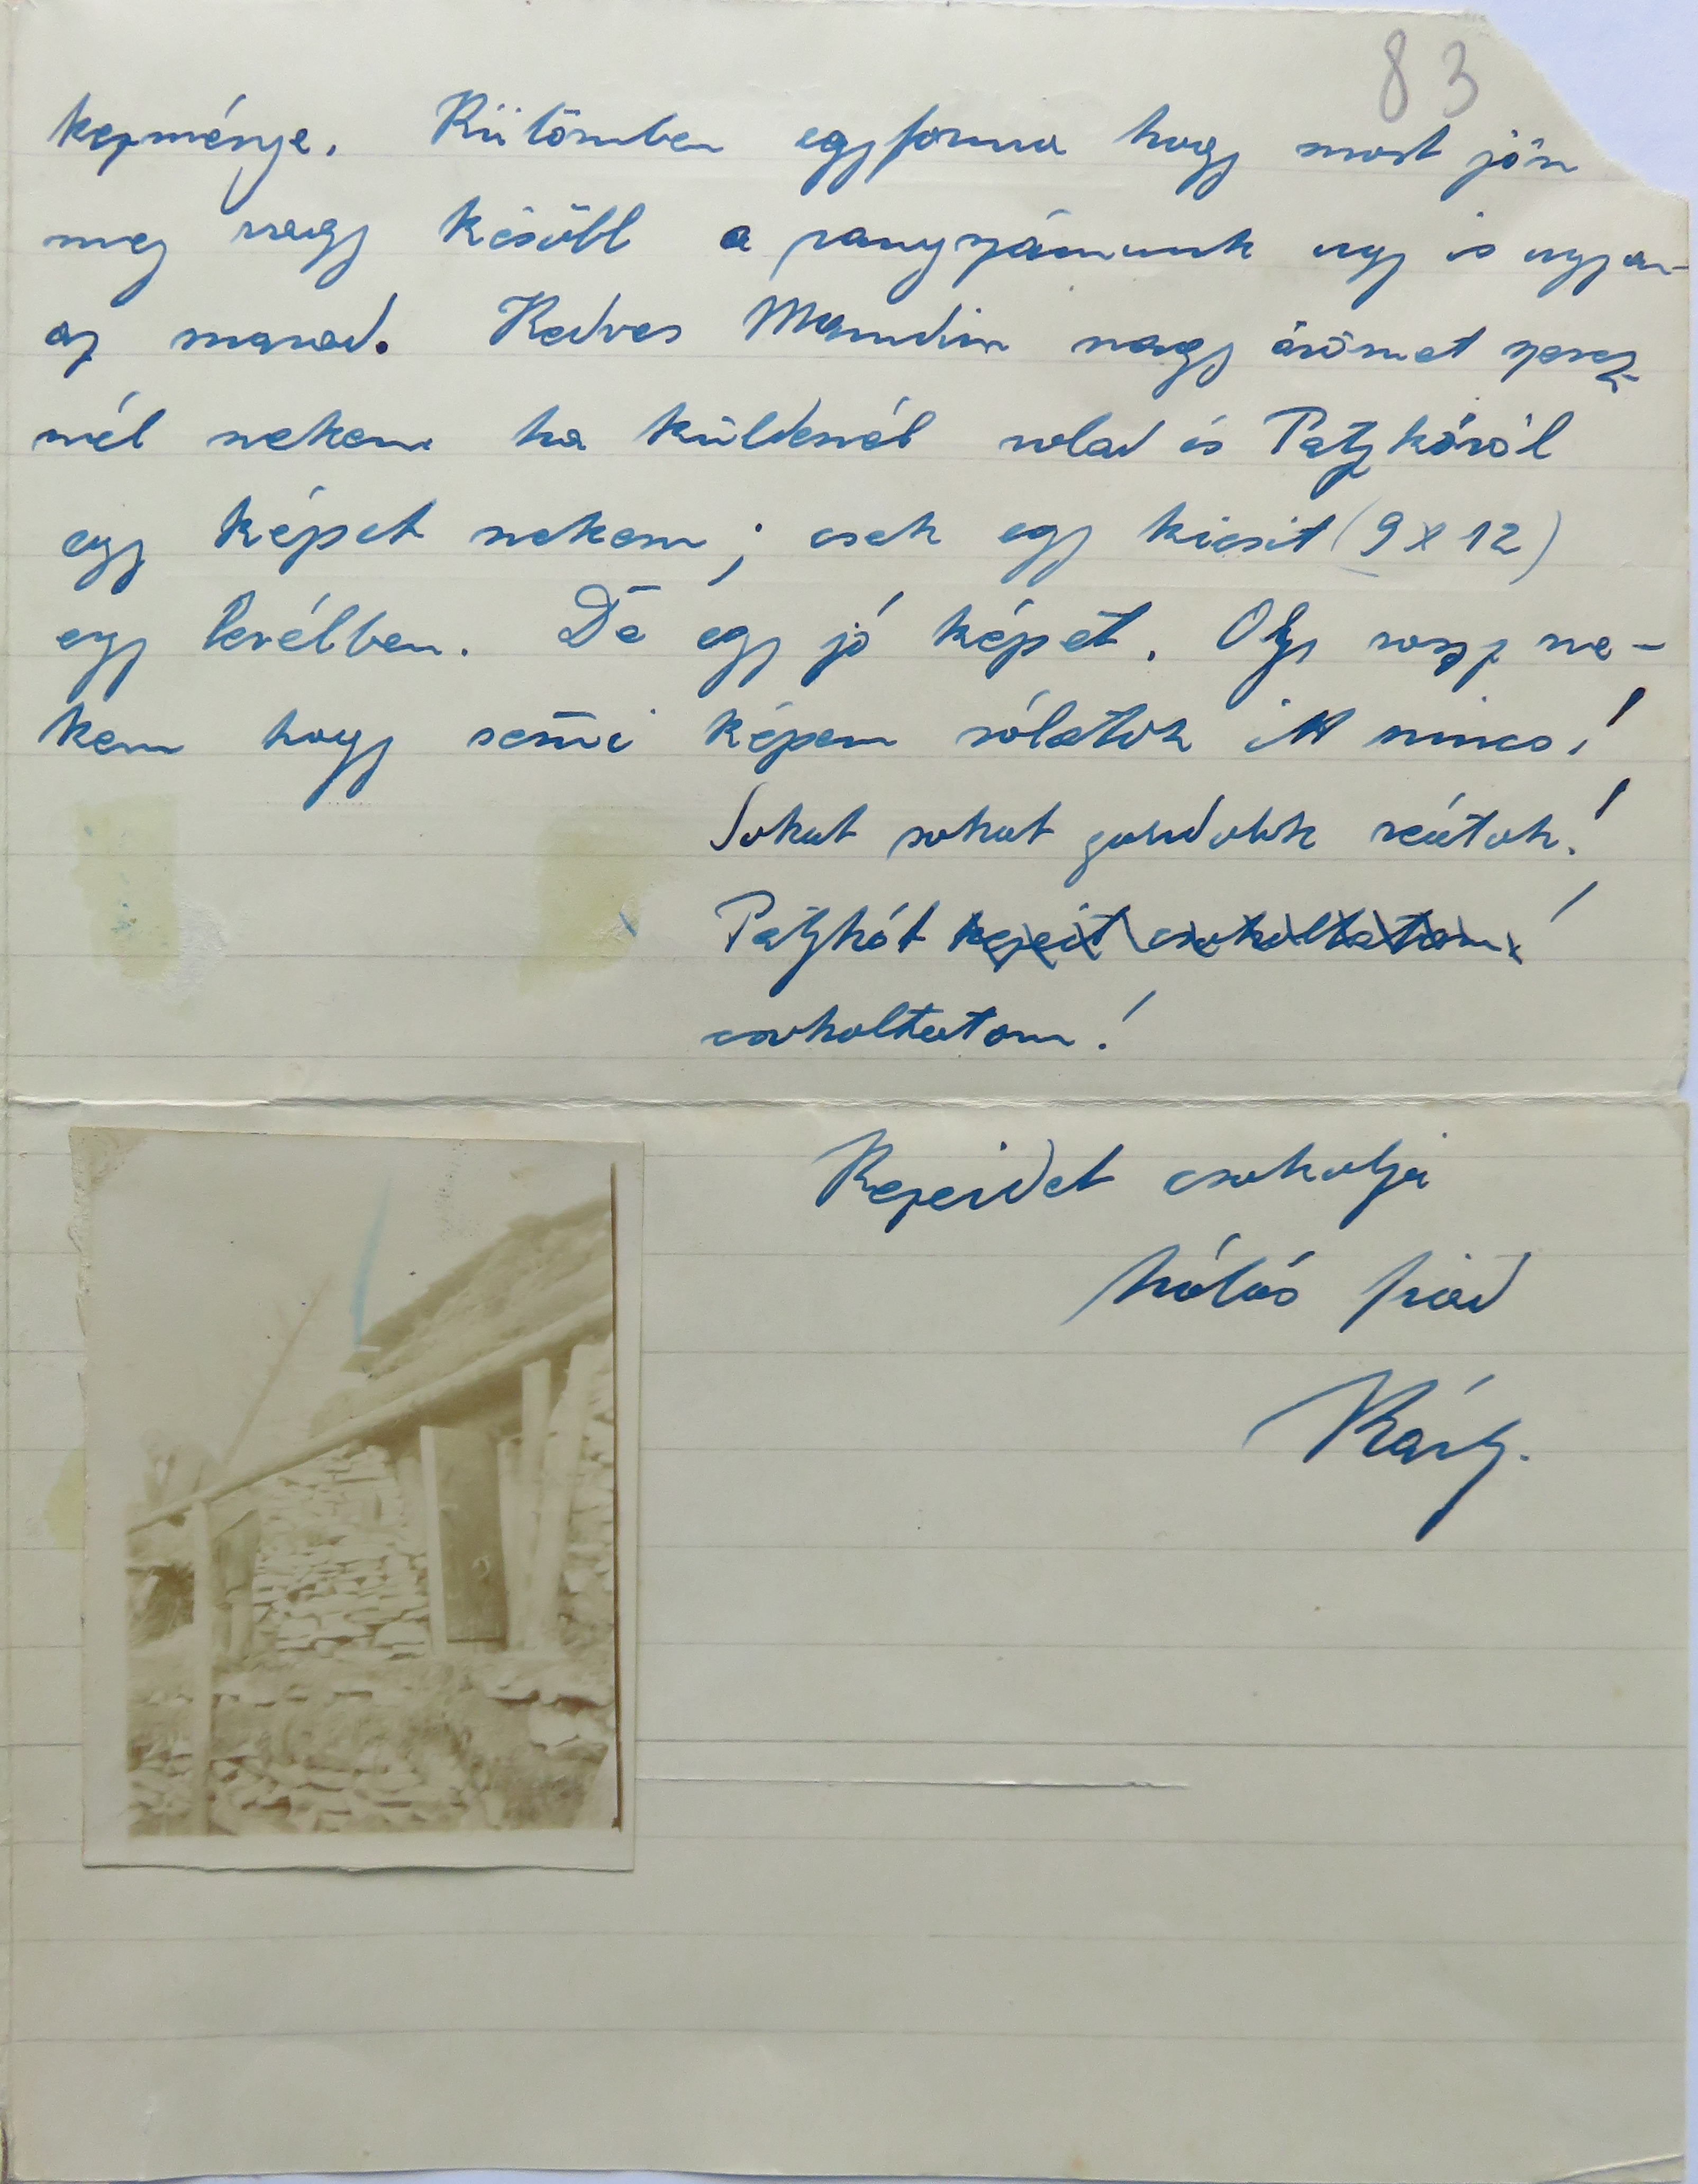 83
kezménye. Külömben egyforma hogy most jön
meg vagy késöbb a rangszámunk ugy is ugyan-
az marad. Kedves Mamdim nagy örömet szerez-
nél nekem ha küldenél rolad és Patzkóról
egy képet nekem; csak egy kicsit (9x12)
egy levélben. De egy jó képet. Oly rossz ne-
kem hogy semi képem rólatok itt nincs!
Sokat sokat gondolok reátok!
Patzkót kezeit csokoltatom!
csokoltatom!
Kezeidet csokolja
hálás fiad
Károly.